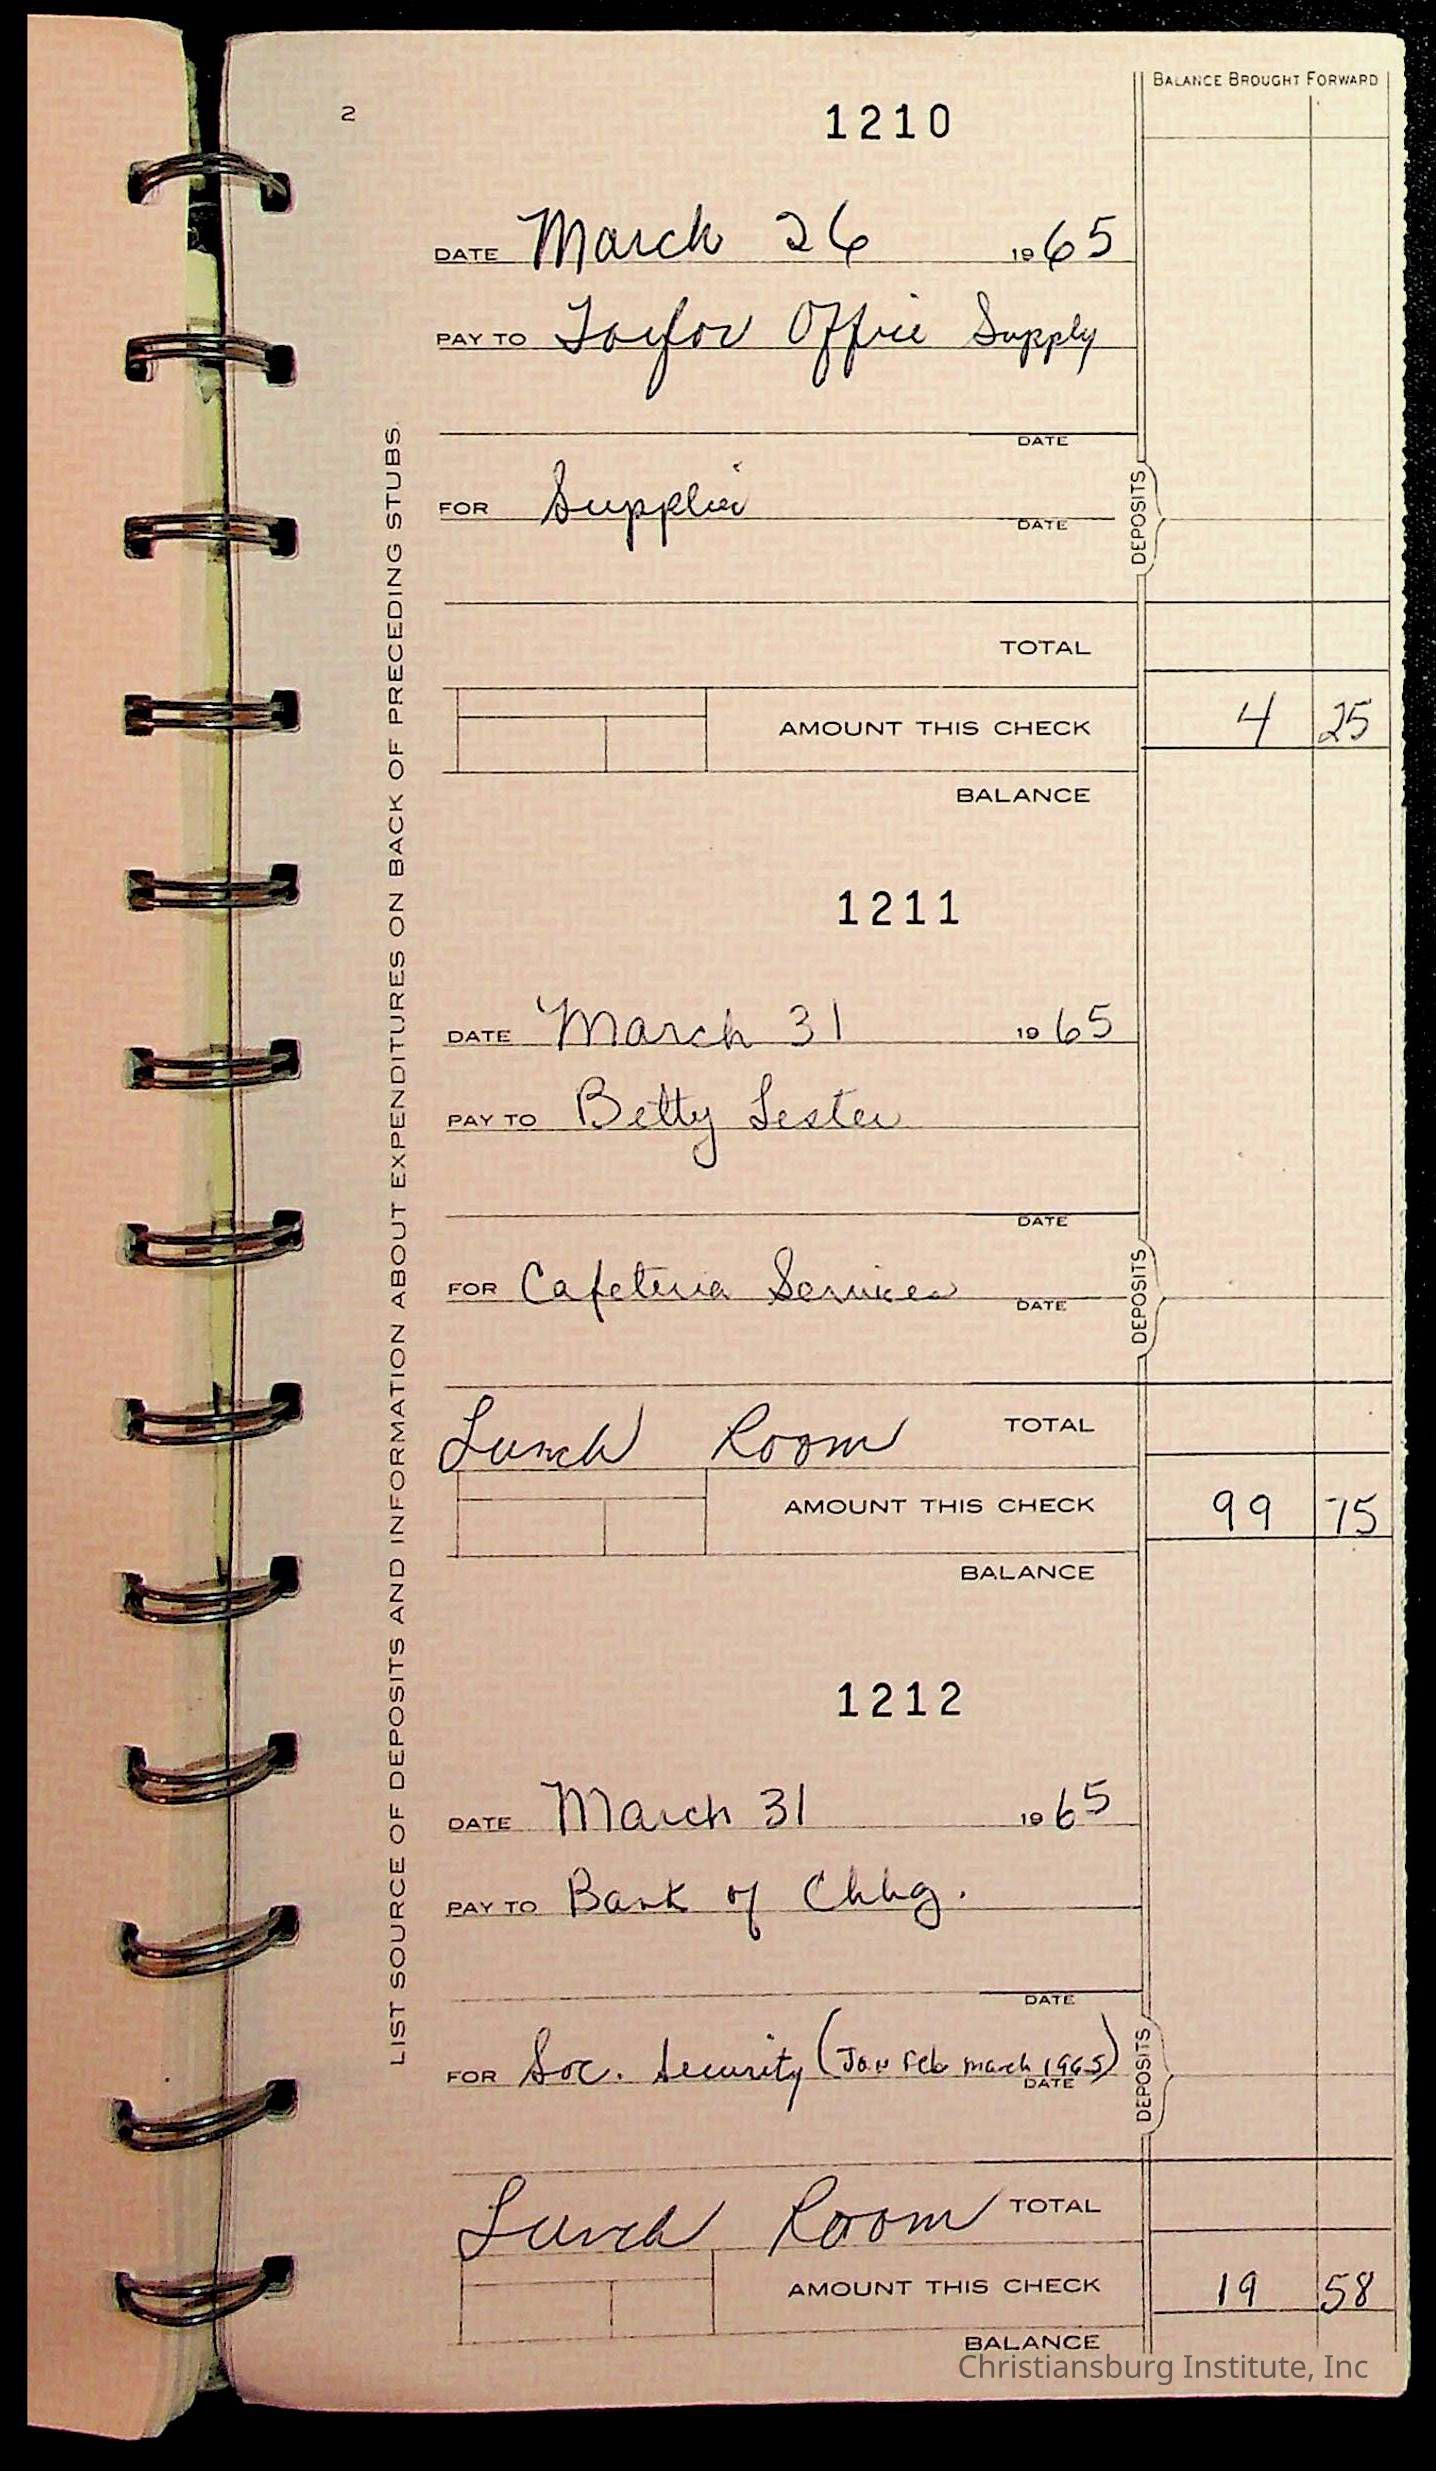 2
BALANCE BROUGHT FORWARD
1210
DATE March 26 1965
PAY TO Taylor Office Supply
DATE
FOR Supplies
DATE
DEPOSITS
TOTAL
AMOUNT THIS CHECK 4 25
BALANCE
LIST SOURCE OF DEPOSITS AND INFORMATION ABOUT EXPENDITURES ON BACK OF PRECEDING STUBS.
1211
DATE March 31 1965
PAY TO Betty Lester
DATE
FOR Cafeteria Services
DATE
DEPOSITS
Lunch Room TOTAL
AMOUNT THIS CHECK 99 75
BALANCE
1212
DATE March 31 1965
PAY TO Bank of Chbg.
DATE
FOR Soc. Security (Jan Feb march 1965)
DATE
DEPOSITS
Lunch Room TOTAL
AMOUNT THIS CHECK 19 58
BALANCE
Christiansburg Institute, Inc